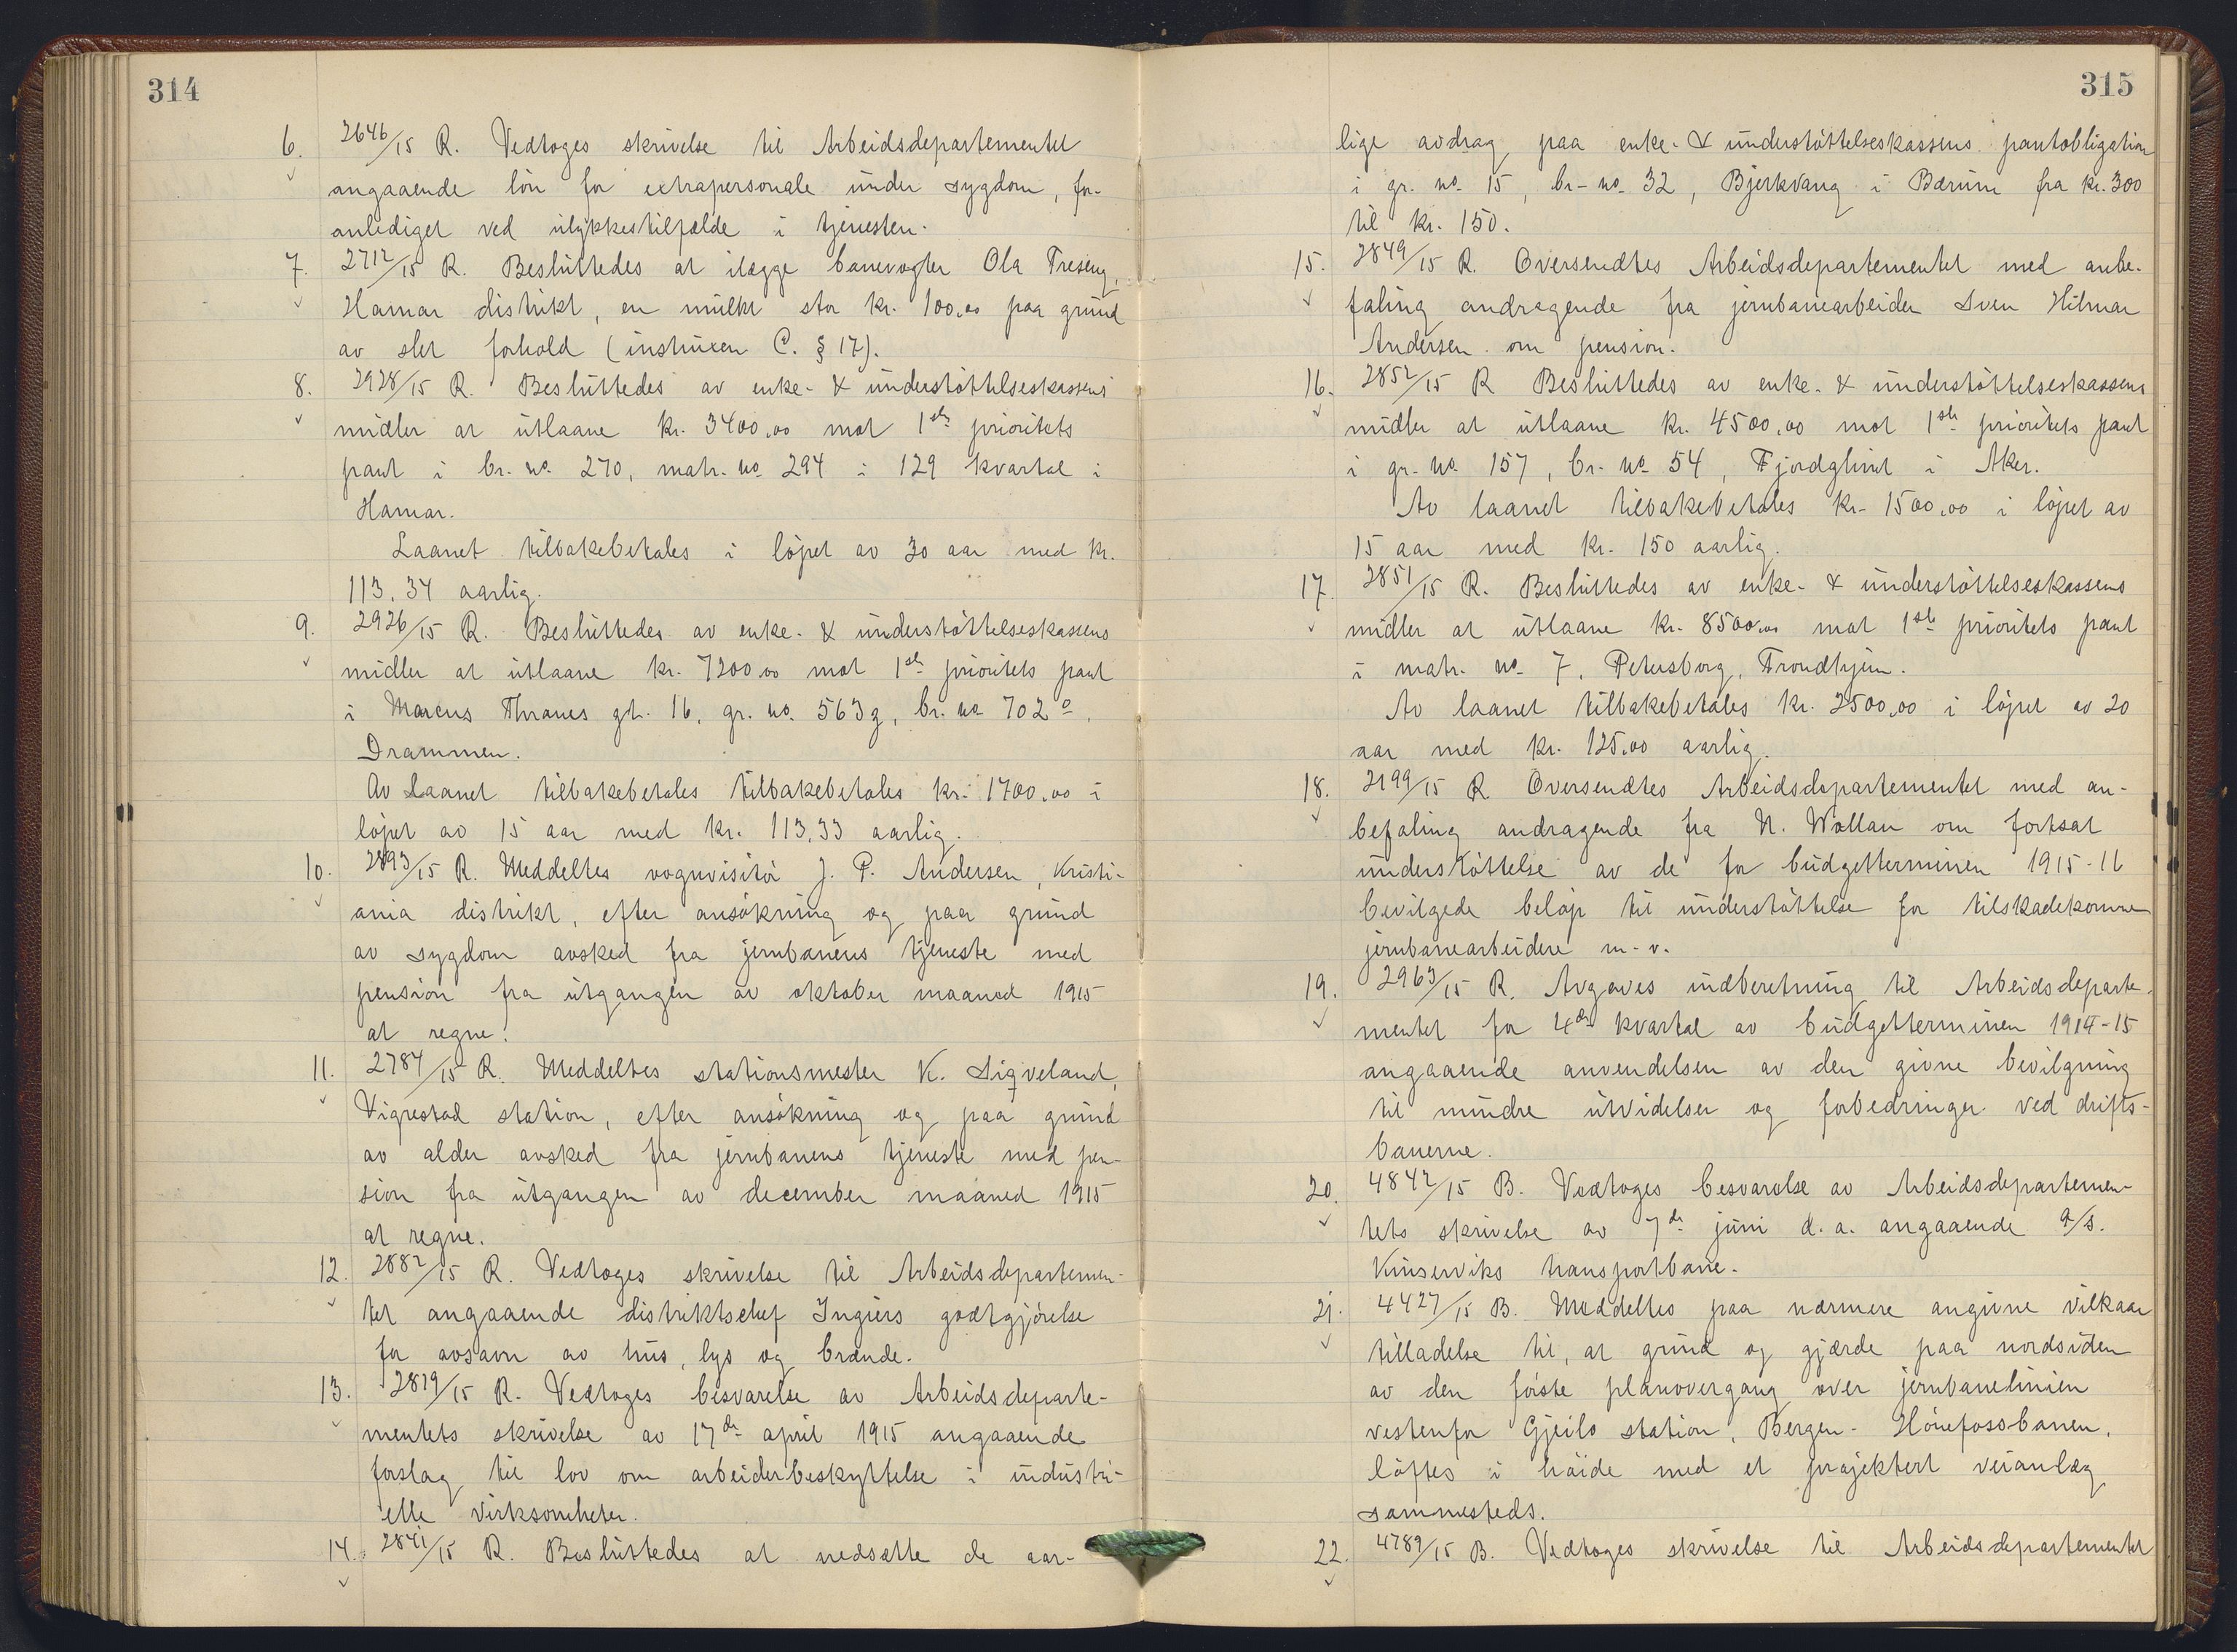 314
6. 2646/15 R. Vedtoges skrivelse til Arbeidsdepartementet
angaaende lön for extrapersonale under sygdom, for-
anlediget ved ulykkestilfælde i tjenesten.
7. 2712/15 R. Besluttedes at ilægge banevogter Ola Treseng,
Hamar distrikt, en mulkt stor kr. 100,00 paa grund
av slet forhold (instruxen C. § 17).
8. 2928/15 R. Besluttedes av enke- & understöttelseskassens
midler at utlaane kr. 3400,00 mot 1ste prioritets
pant i br. no. 270, matr. no. 294 i 129 kvartal i
Hamar.
Laanet tilbakebetales i löpet av 30 aar med kr.
113,34 aarlig.
9. 2926/15 R. Besluttedes av enke- & understöttelseskassens
midler at utlaane kr. 7200,00 mot 1ste prioritets pant
i Marcus Thranes gt. 16, gr. no. 563g, br. no 702o,
Drammen.
Av Laanet tilbakebetales tilbakebetales kr. 1700,00 i
löpet av 15 aar med kr. 113,33 aarlig.
10. 2893/15 R. Meddeltes vognvisitör J. P. Andersen, Kristi-
ania distrikt, efter ansökning og paa grund
av sygdom avsked fra jernbanens tjeneste med
pension fra utgangen av oktober maaned 1915
at regne.
11. 2784/15 R. Meddeltes stationsmester K. Sigveland,
Vigrestad station, efter ansökning og paa grund
av alder avsked fra jernbanens tjeneste med pen-
sion fra utgangen av december maaned 1915
at regne.
12. 2882/15 R. Vedtoges skrivelse til Arbeidsdepartemen-
tet angaaende distriktschef Ingiers godtgjörelse
for avsavn av hus, lys og brænde.
13. 2819/15 R. Vedtoges besvarelse av Arbeidsdeparte-
mentets skrivelse av 17de april 1915 angaaende
forslag til lov om arbeiderbeskyttelse i industri-
elle virksomheter.
14. 2841/15 R. Besluttedes at nedsætte de aar-
315
lige avdrag paa enke- & understöttelseskassens pantobligation
i gr. no. 15, br- no. 32, Bjerkvang i Bærum fra kr. 300
til kr. 150.
15. 2849/15 R. Oversendtes Arbeidsdepartementet med anbe-
faling andragende fra jernbanearbeider Sven Hilmar
Andersen om pension.
16. 2852/15 R Besluttedes av enke- & understöttelseskassens
midler at utlaane kr. 4500,00 mot 1ste prioritets pant
i gr. no. 157, br. no 54, Fjordglimt i Aker.
Av laanet tilbakebetales kr. 1500,00 i löpet av
15 aar med kr. 150 aarlig.
17. 2851/15 R. Besluttedes av enke- & understöttelseskassens
midler at utlaane kr. 8500,00 mot 1ste prioritets pant
i matr. no. 7, Petersborg, Trondhjem.
Av laanet tilbakebetales kr. 2500,00 i löpet av 20
aar med kr. 125,00 aarlig.
18. 2199/15 R Oversendtes Arbeidsdepartementet med an-
befaling andragende fra N. Wollan om fortsat
understöttelse av de for budgetterminen 1915-16
bevilgede belöp til understöttelse for tilskadekomne
jernbanearbeidere m.v.
19. 2963/15 R. Avgaves indberetning til Arbeidsdeparte-
mentet for 4de kvartal av budgetterminen 1914-15
angaaende anvendelsen av den givne bevilgning
til mindre utvidelser og forbedringer ved drifts-
banerne.
20. 4842/15 B. Vedtoges besvarelse av Arbeidsdepartemen-
tets skrivelse av 7de juni d.a. angaaende A/S.
Kinserviks transportbane.
21. 4427/15 B. Meddeltes paa nærmere angivne vilkaar
tilladelse til, at grind og gjærde paa nordsiden
av den förste planovergang over jernbanelinien
vestenfor Gjeilo station, Bergen-Hönefossbanen,
löftes i höide med et projektert veianlæg
sammesteds.
22. 4789/15 B. Vedtoges skrivelse til Arbeidsdepartementet